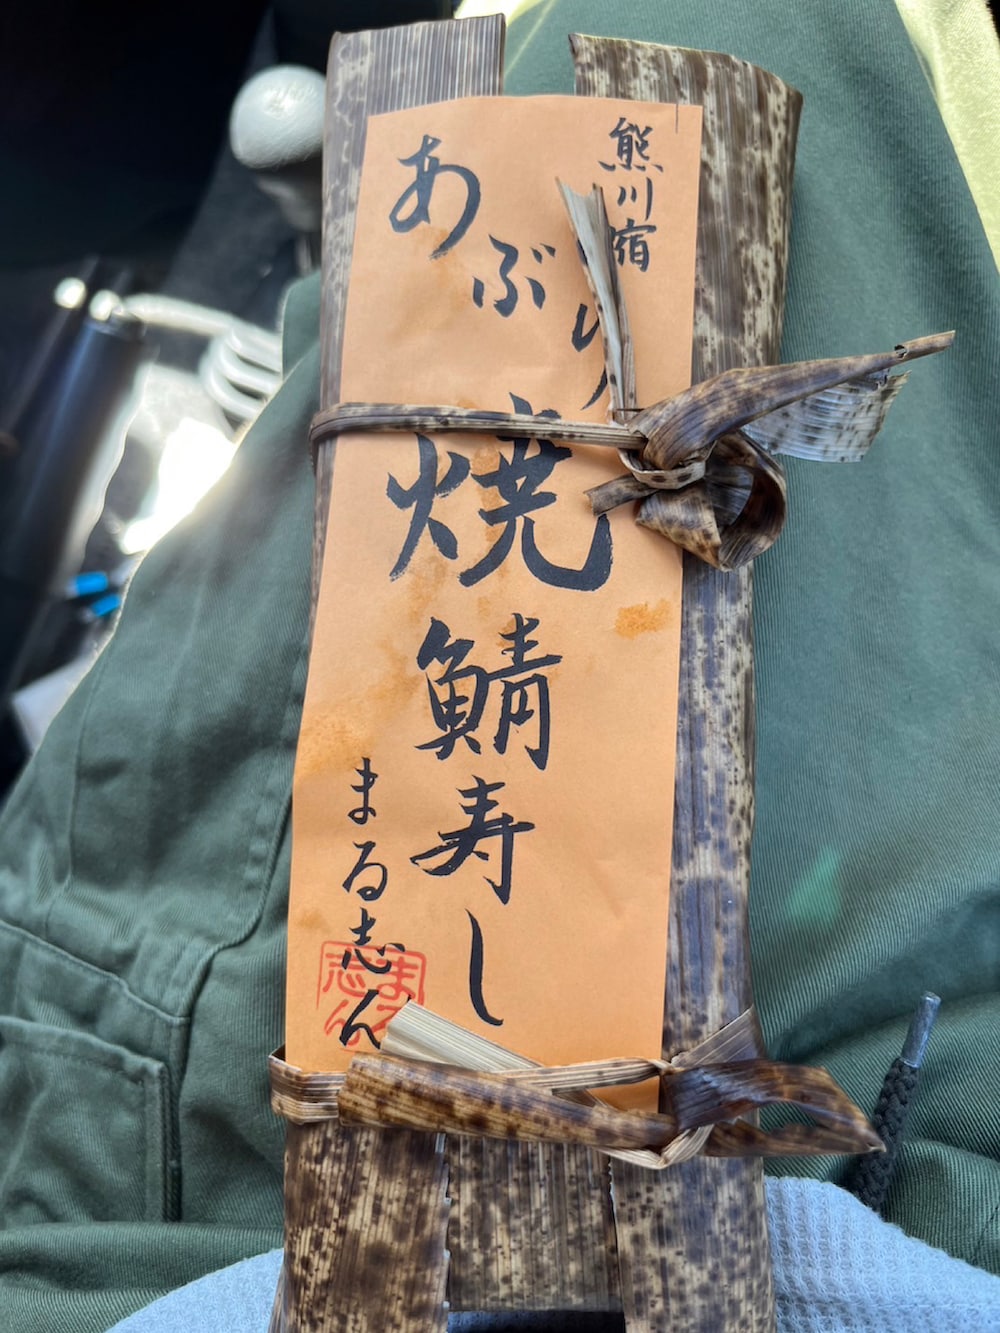 熊川宿
あぶり
焼鯖寿し
まる志ん
まる志ん